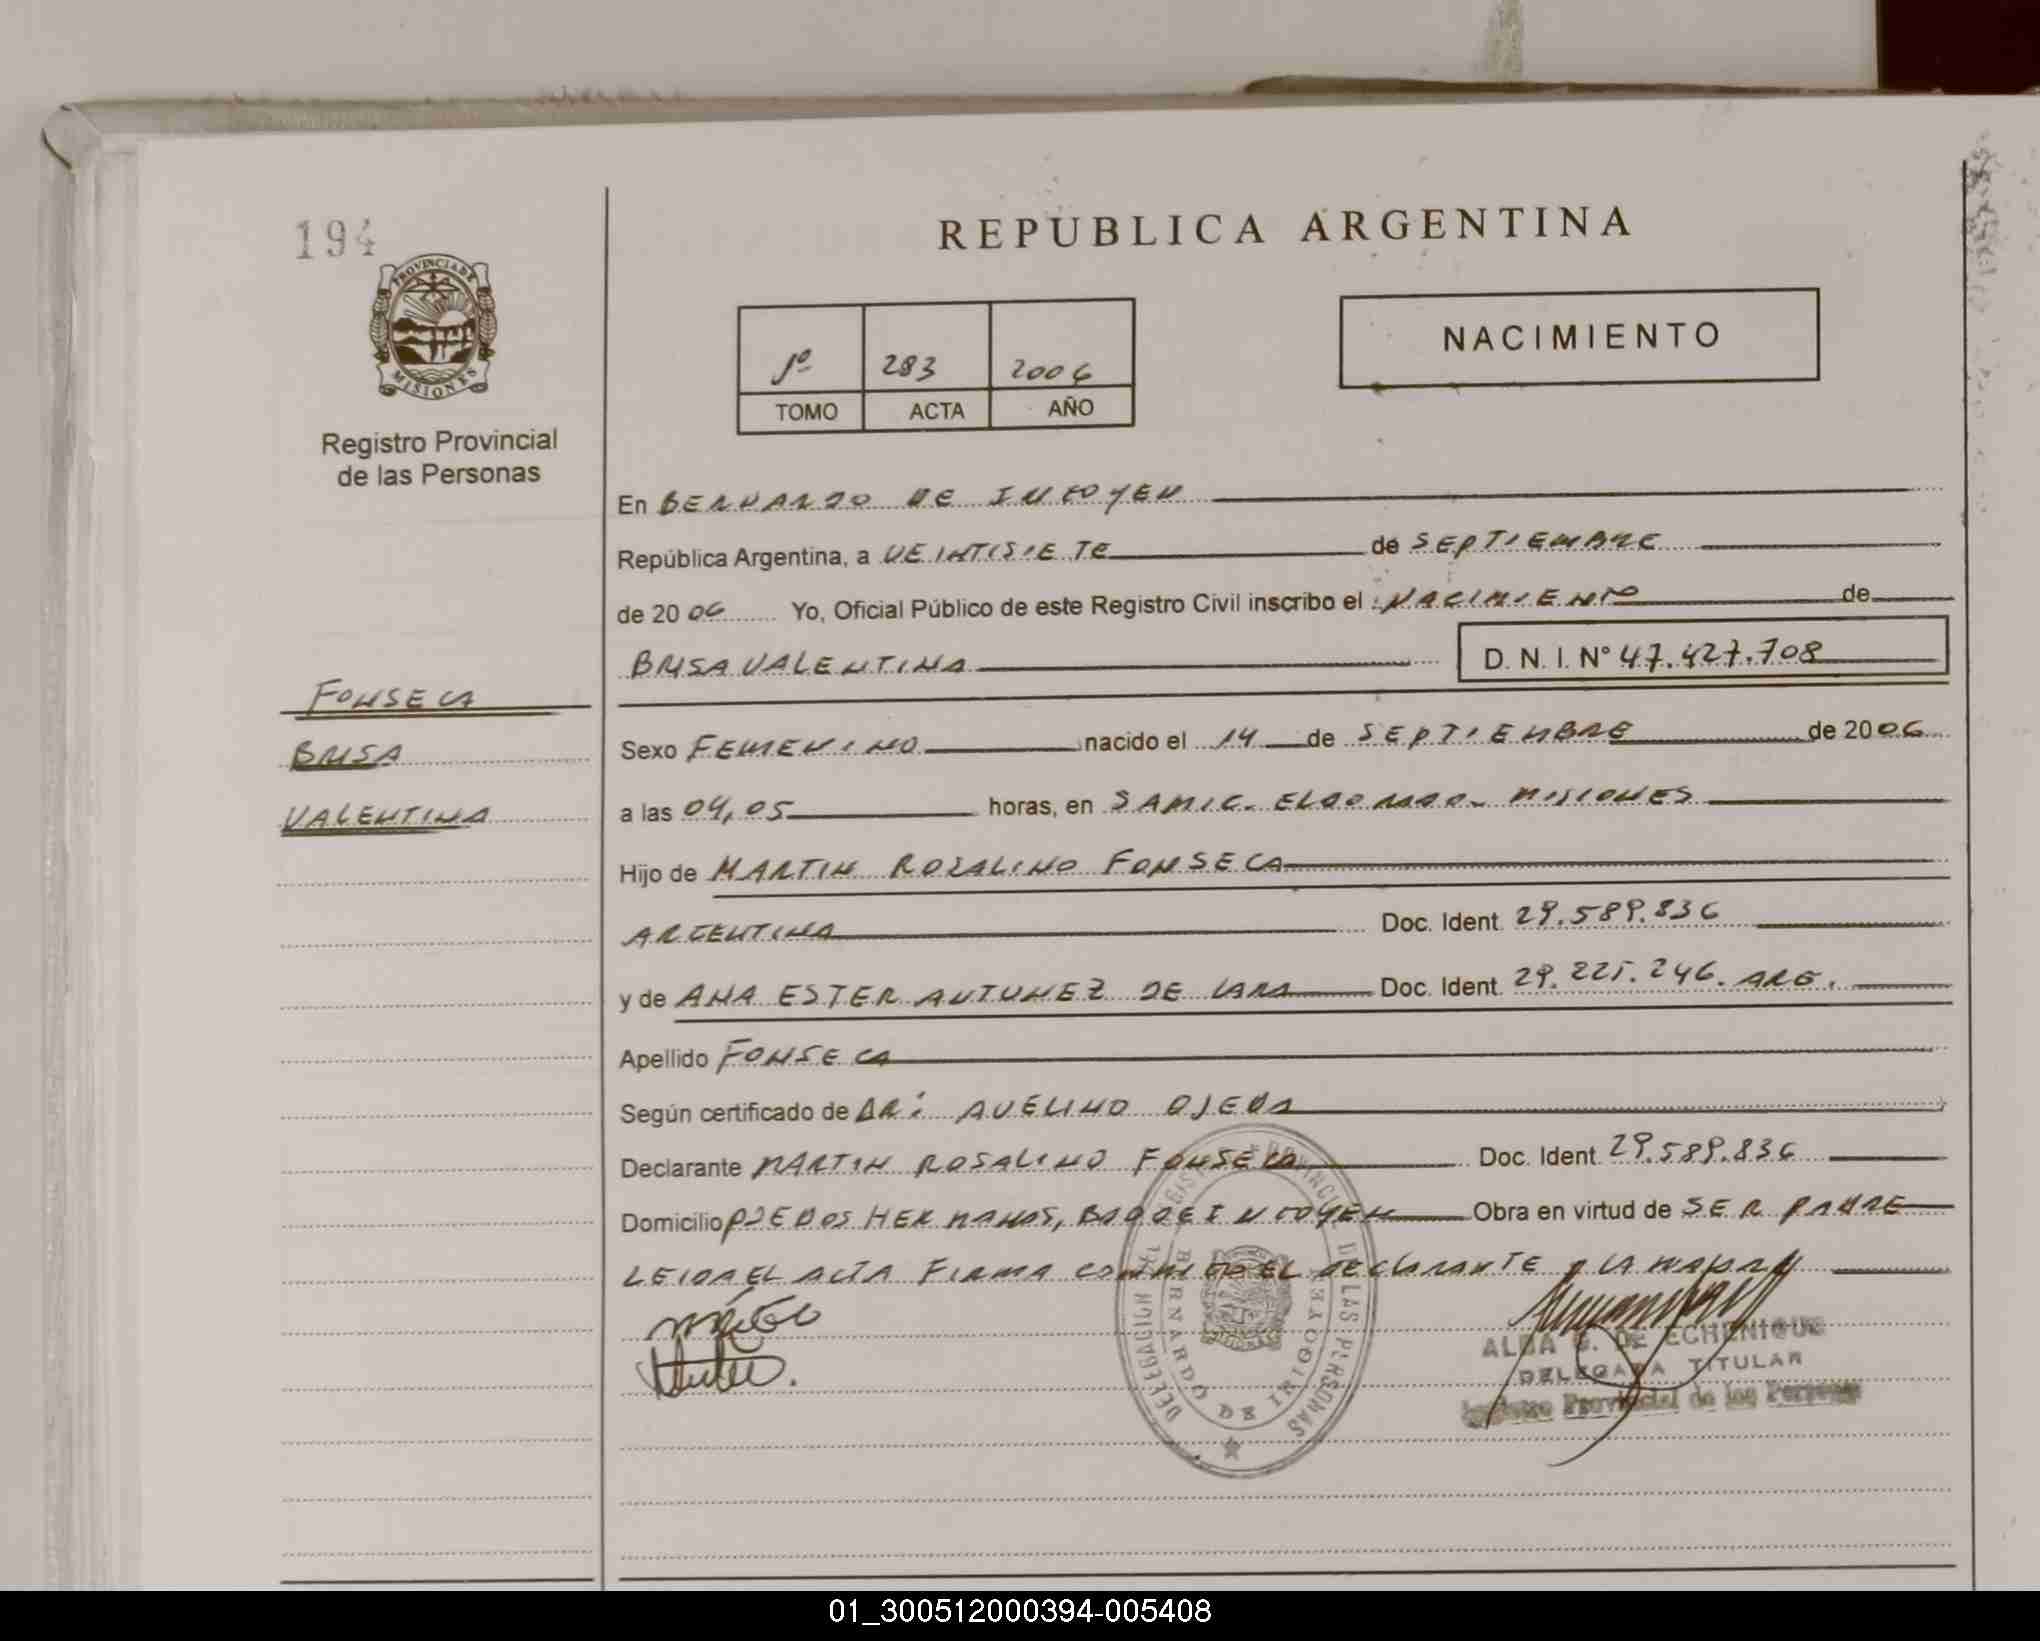 194
PROVINCIA DE
MISIONES
Registro Provincial
de las Personas
FONSECA
BRISA
VALENTINA
REPUBLICA ARGENTINA
1º 283 2006
TOMO ACTA AÑO
NACIMIENTO
En BERNARDO DE IRIGOYEN
República Argentina, a VEINTISIETE de SEPTIEMBRE
de 2006 Yo, Oficial Público de este Registro Civil inscribo el NACIMIENTO de
BRISA VALENTINA D. N. I. N° 47.427.708
Sexo FEMENINO nacido el 14 de SEPTIEMBRE de 2006
a las 04,05 horas, en SAMIC- ELDORADO- MISIONES
Hijo de MARTIN ROSALINO FONSECA
ARGENTINA Doc. Ident. 29.589.836
y de ANA ESTER ANTUNEZ DE LARA Doc. Ident. 29.225.246. ARG.
Apellido FONSECA
Según certificado de DR: AVELINO OJEDA
Declarante MARTIN ROSALINO FONSECA Doc. Ident. 29.589.836
Domicilio HERMANOS, BDO DE IRIGOYEN Obra en virtud de SER PADRE
LEIDA EL ACTA FIRMA CONMIGO EL DECLARANTE Y LA MADRE
DELEGACION REGISTRO PROVINCIAL DE LAS PERSONAS
BERNARDO DE IRIGOYEN
ALBA G. DE ECHENIQUE
DELEGADA TITULAR
Registro Provincial de las Personas
01_300512000394-005408